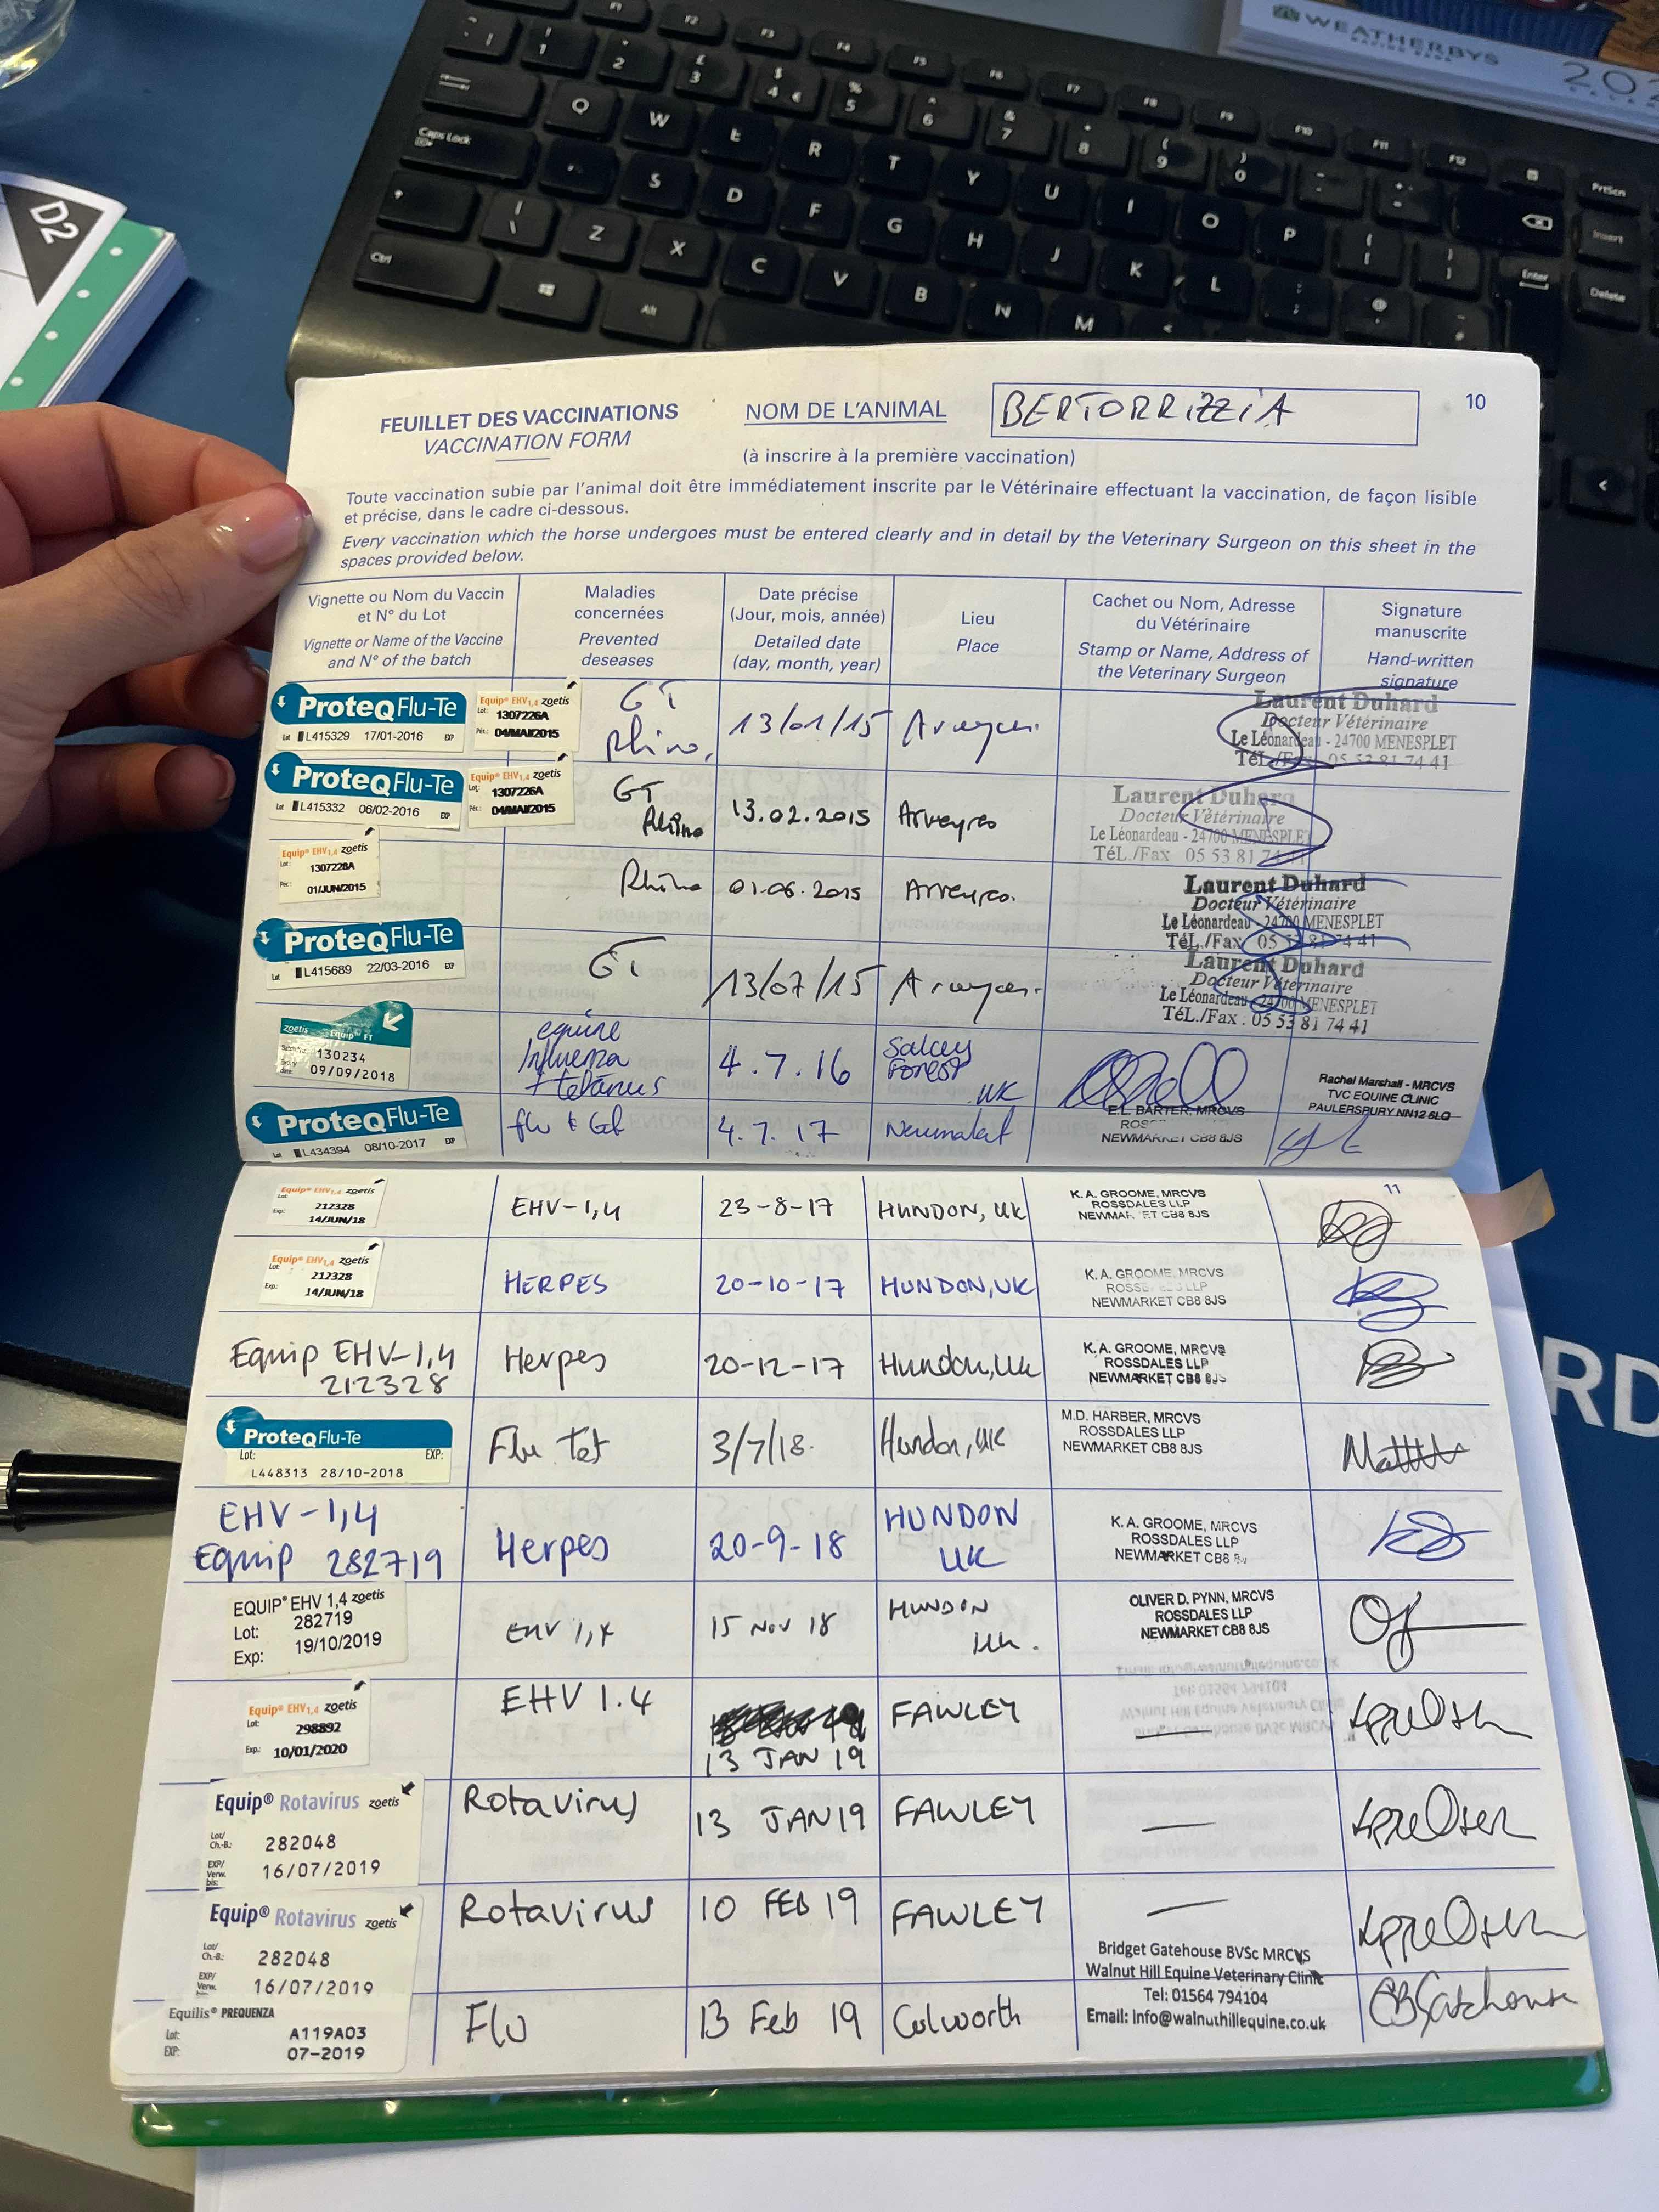 WEATHERBYS
RACING BANK
202
D2
FEUILLET DES VACCINATIONS
VACCINATION FORM
NOM DE L'ANIMAL
BERTORRIZZIA
10
(à inscrire à la première vaccination)
Toute vaccination subie par l'animal doit être immédiatement inscrite par le Vétérinaire effectuant la vaccination, de façon lisible
et précise, dans le cadre ci-dessous.
Every vaccination which the horse undergoes must be entered clearly and in detail by the Veterinary Surgeon on this sheet in the
spaces provided below.
Vignette ou Nom du Vaccin
et N° du Lot
Vignette or Name of the Vaccine
and N° of the batch
Maladies
concernées
Prevented
deseases
Date précise
(Jour, mois, année)
Detailed date
(day, month, year)
Lieu
Place
Cachet ou Nom, Adresse
du Vétérinaire
Stamp or Name, Address of
the Veterinary Surgeon
Signature
manuscrite
Hand-written
signature
ProteqFlu-Te
Lot L415329 17/01/2016 EXP
Equip® EHV1,4 zoetis
Lot: 1307226A
Pér.: 04/MAI/2015
GT
Rhino,
13/01/15
Laurent Duhard
Docteur Vétérinaire
Le Léonardeau - 24700 MENESPLET
TéL./Fax 05 53 81 74 41
ProteqFlu-Te
Lot L415332 06/02/2016 EXP
Equip® EHV1,4 zoetis
Lot: 1307226A
Pér.: 04/MAI/2015
GT
Rhino
13.02.2015
Arveyres
Laurent Duhard
Docteur Vétérinaire
Le Léonardeau - 24700 MENESPLET
TéL./Fax 05 53 81 74 41
Equip® EHV1,4 zoetis
Lot: 1307228A
Pér.: 01/JUN/2015
Rhino
01.06.2015
Arveyres.
Laurent Duhard
Docteur Vétérinaire
Le Léonardeau - 24700 MENESPLET
TéL./Fax 05 53 81 74 41
ProteqFlu-Te
Lot L415689 22/03/2016 EXP
GT
13/07/15
Laurent Duhard
Docteur Vétérinaire
Le Léonardeau - 24700 MENESPLET
TéL./Fax : 05 53 81 74 41
zoetis Equip™ FT
130234
09/09/2018
equine
Influenza
+ tetanus
4.7.16
Salcey
Forest
UK
Rachel Marshall - MRCVS
TVC EQUINE CLINIC
PAULERSPURY NN12 6LQ
ProteqFlu-Te
Lot L434394 08/10/2017 EXP
flu & tet
4.7.17
Newmarket
E.L. BARTER, MRCVS
NEWMARKET CB8 8JS
11
Equip® EHV1,4 zoetis
Lot: 212328
Exp.: 14/JUN/18
EHV-1,4
23-8-17
HUNDON, UK
K. A. GROOME, MRCVS
ROSSDALES LLP
NEWMARKET CB8 8JS
Equip® EHV1,4 zoetis
Lot: 212328
Exp.: 14/JUN/18
HERPES
20-10-17
HUNDON, UK
K. A. GROOME, MRCVS
ROSSDALES LLP
NEWMARKET CB8 8JS
Equip EHV-1,4
212328
Herpes
20-12-17
Hundon, UK
K. A. GROOME, MRCVS
ROSSDALES LLP
NEWMARKET CB8 8JS
ProteqFlu-Te
Lot: EXP:
L448313 28/10-2018
Flu tet
3/7/18.
Hundon, UK
M.D. HARBER, MRCVS
ROSSDALES LLP
NEWMARKET CB8 8JS
EHV-1,4
Equip 282719
Herpes
20-9-18
HUNDON
UK
K. A. GROOME, MRCVS
ROSSDALES LLP
NEWMARKET CB8
EQUIP® EHV 1,4 zoetis
Lot: 282719
Exp: 19/10/2019
EHV 1,4
15 NOV 18
HUNDON
UK.
OLIVER D. PYNN, MRCVS
ROSSDALES LLP
NEWMARKET CB8 8JS
Equip® EHV1,4 zoetis
Lot: 298892
Exp.: 10/01/2020
EHV 1.4
13 JAN 19
FAWLEY
Equip® Rotavirus zoetis
Lot/
Ch.-B.: 282048
EXP/
Verw.
bis: 16/07/2019
Rotavirus
13 JAN 19
FAWLEY
Equip® Rotavirus zoetis
Lot/
Ch.-B.: 282048
EXP/
Verw. 16/07/2019
Rotavirus
10 FEB 19
FAWLEY
Equilis® PREQUENZA
Lot: A119A03
EXP: 07-2019
Flu
13 Feb 19
Colworth
Bridget Gatehouse BVSc MRCVS
Walnut Hill Equine Veterinary Clinic
Tel: 01564 794104
Email: Info@walnuthillequine.co.uk
RD